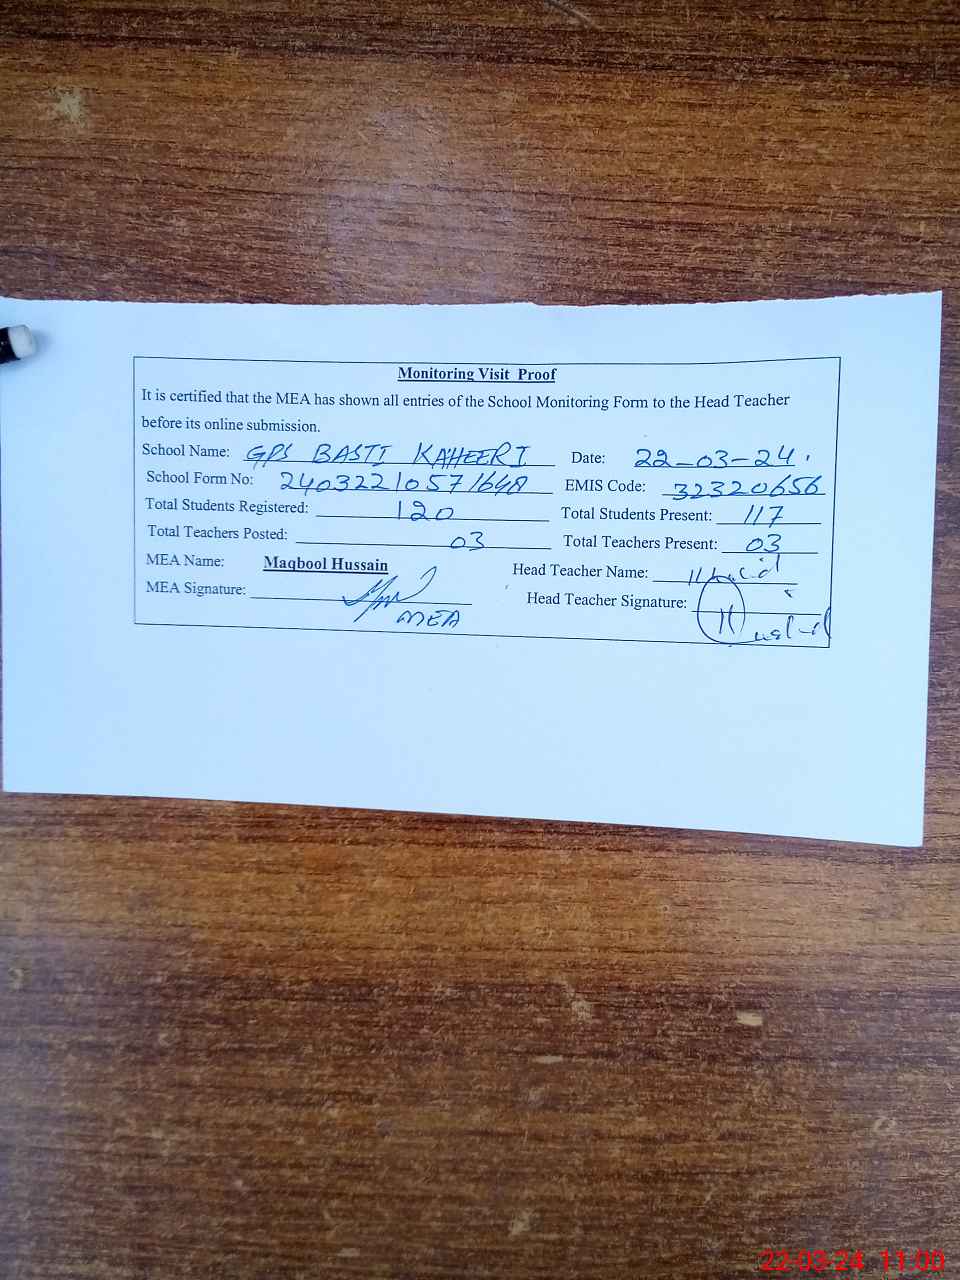 Monitoring Visit Proof
It is certified that the MEA has shown all entries of the School Monitoring Form to the Head Teacher
before its online submission.
School Name: GPS BASTI KAHEERI Date: 22-03-24.
School Form No: 24032210571648 EMIS Code: 32320656
Total Students Registered: 120 Total Students Present: 117
Total Teachers Posted: 03 Total Teachers Present: 03
MEA Name: Maqbool Hussain Head Teacher Name:
MEA Signature: Head Teacher Signature:
MEA
22-03-24 11:00